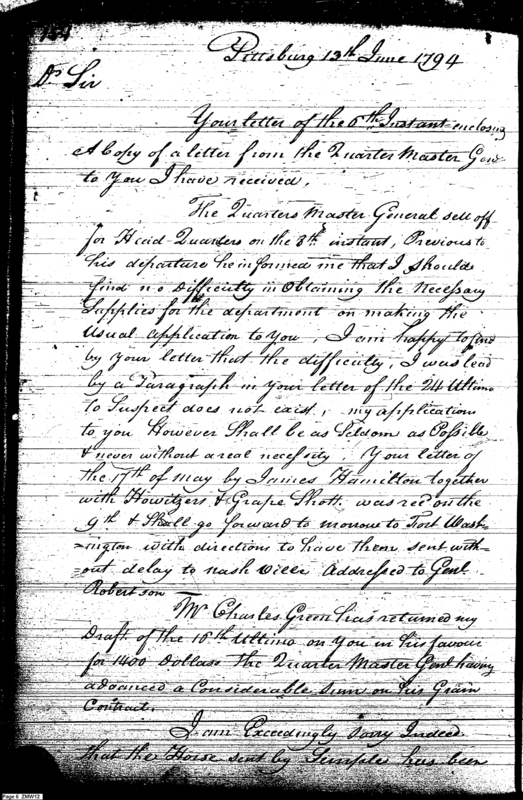 154
Pittsburg 13th June 1794
Dr Sir
Your letter of the 6th Instant enclosing
A Copy of a letter from the Quarter Master Genl
to You I have received.
The Quarters Master General sell off
for Head Quarters on the 8th instant, Previous to
his departure he informed me that I should
find no difficulty in Obtaining the Necessary
Supplies for the department on making the
Usual application to You, I am happy to find
by your letter that the difficulty, I was lead
by a Paragraph in your letter of the 24 Ultimo
to Suspect does not exist, my application
to you However Shall be as Seldom as Possible
& never without a real necessity. Your letter of
the 17th of may by James Hamilton together
with Howitzers & Grape Shott, was recd on the
9th & Shall go forward to morrow to Fort Wash-
=ington with directions to have them sent with-
=out delay to nash ville Addressed to Genl
Robertson
Mr Charles Green has returned my
Draft of the 10th Ultimo on You in his favour
for 1400 Dollars the Quarter Master Genl having
advanced a Considerable Sum on his Grain
Contract.
I am Exceedingly Sorry Indeed
that the Horse sent by Semple has been
Page 6 ZMW12